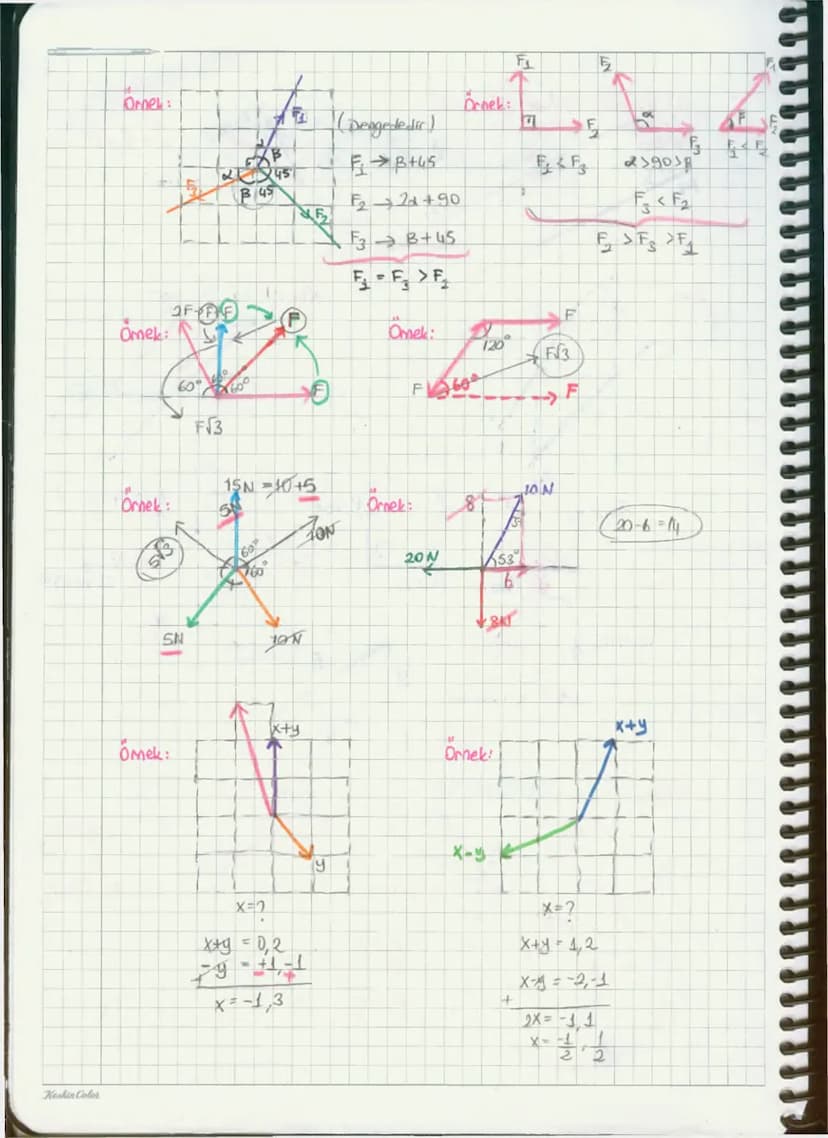 Örnek:
F₁
β
α
45
β
45
F₃
F₂
(Dengededir)
F₁ → β+45
F₂ → 2α+90
F₃ → β+45
F₁ = F₃ > F₂
Örnek:
F₁
F₂
F₂
α
F₃
F₁ < F₃
α>90>β
F₁ < F₂
F₃ < F₂
F₂ > F₃ > F₁
Örnek:
2F
F
F
F
60°
60°
60°
F
F√3
Örnek:
F
120°
F√3
F
60°
F
Örnek:
15N = 10+5
5N
10N
5√3
60°
60°
5N
10N
Örnek:
8
10N
20N
53°
6
8N
20-6=14
Örnek:
x+y
y
x=?
x+y = 0,2
-y = +1,-1
+
x = -1,3
Örnek:
x+y
x-y
x=?
x+y = 1,2
x-y = -2,-1
+
2x = -1,1
x = -1/2, 1/2
Keskin Color